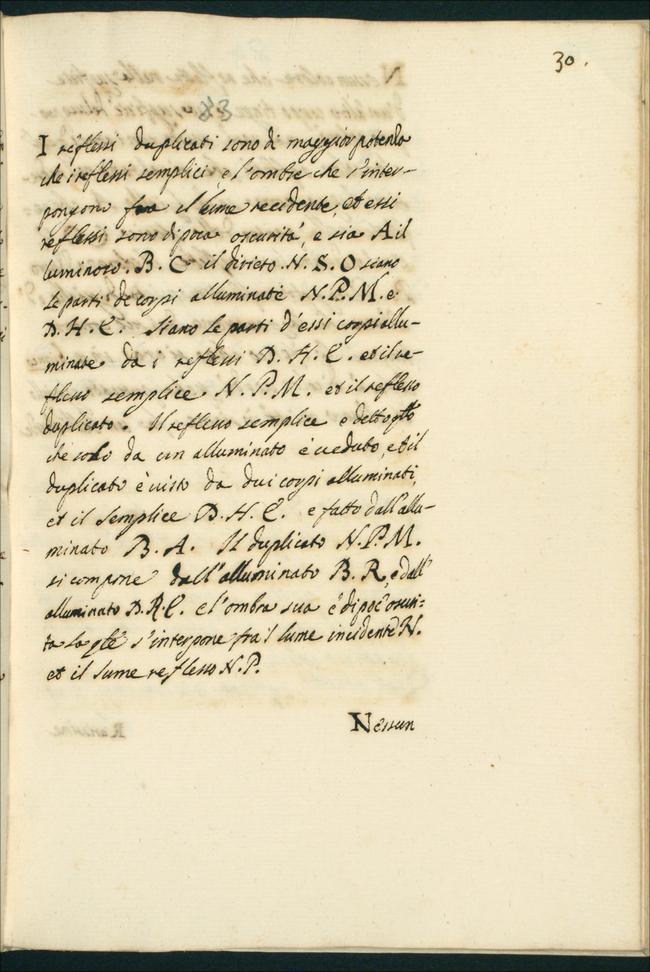 30.
83
I reflessi duplicati sono di maggior potenza
che i reflessi semplici, e l'ombre che s'inter-
pongono fra il lume recidente, et essi
reflessi sono di poca oscurità, e sia A il
luminoso. B. C il diricto N. S. O siano
le parti de corpi alluminate N. P. M. e
D. H. E. Siano le parti d'essi corpi allu-
minate da i reflessi D. H. E. et il re-
flesso semplice. N. P. M. et il reflesso
duplicato. Il reflesso semplice e detto qllo
che solo da un alluminato è veduto, et il
duplicato è visto da dui corpi alluminati,
et il semplice D. H. E. e fatto dall'allu-
minato B. A. Il duplicato N. P. M.
si compone dall'alluminato B. R, e dall'
alluminato D. R. E. e l'ombra sua è di poc'oscuri-
ta la qle s'interpone fra'l lume incidente N.
et il lume reflesso N. P.
Nessun